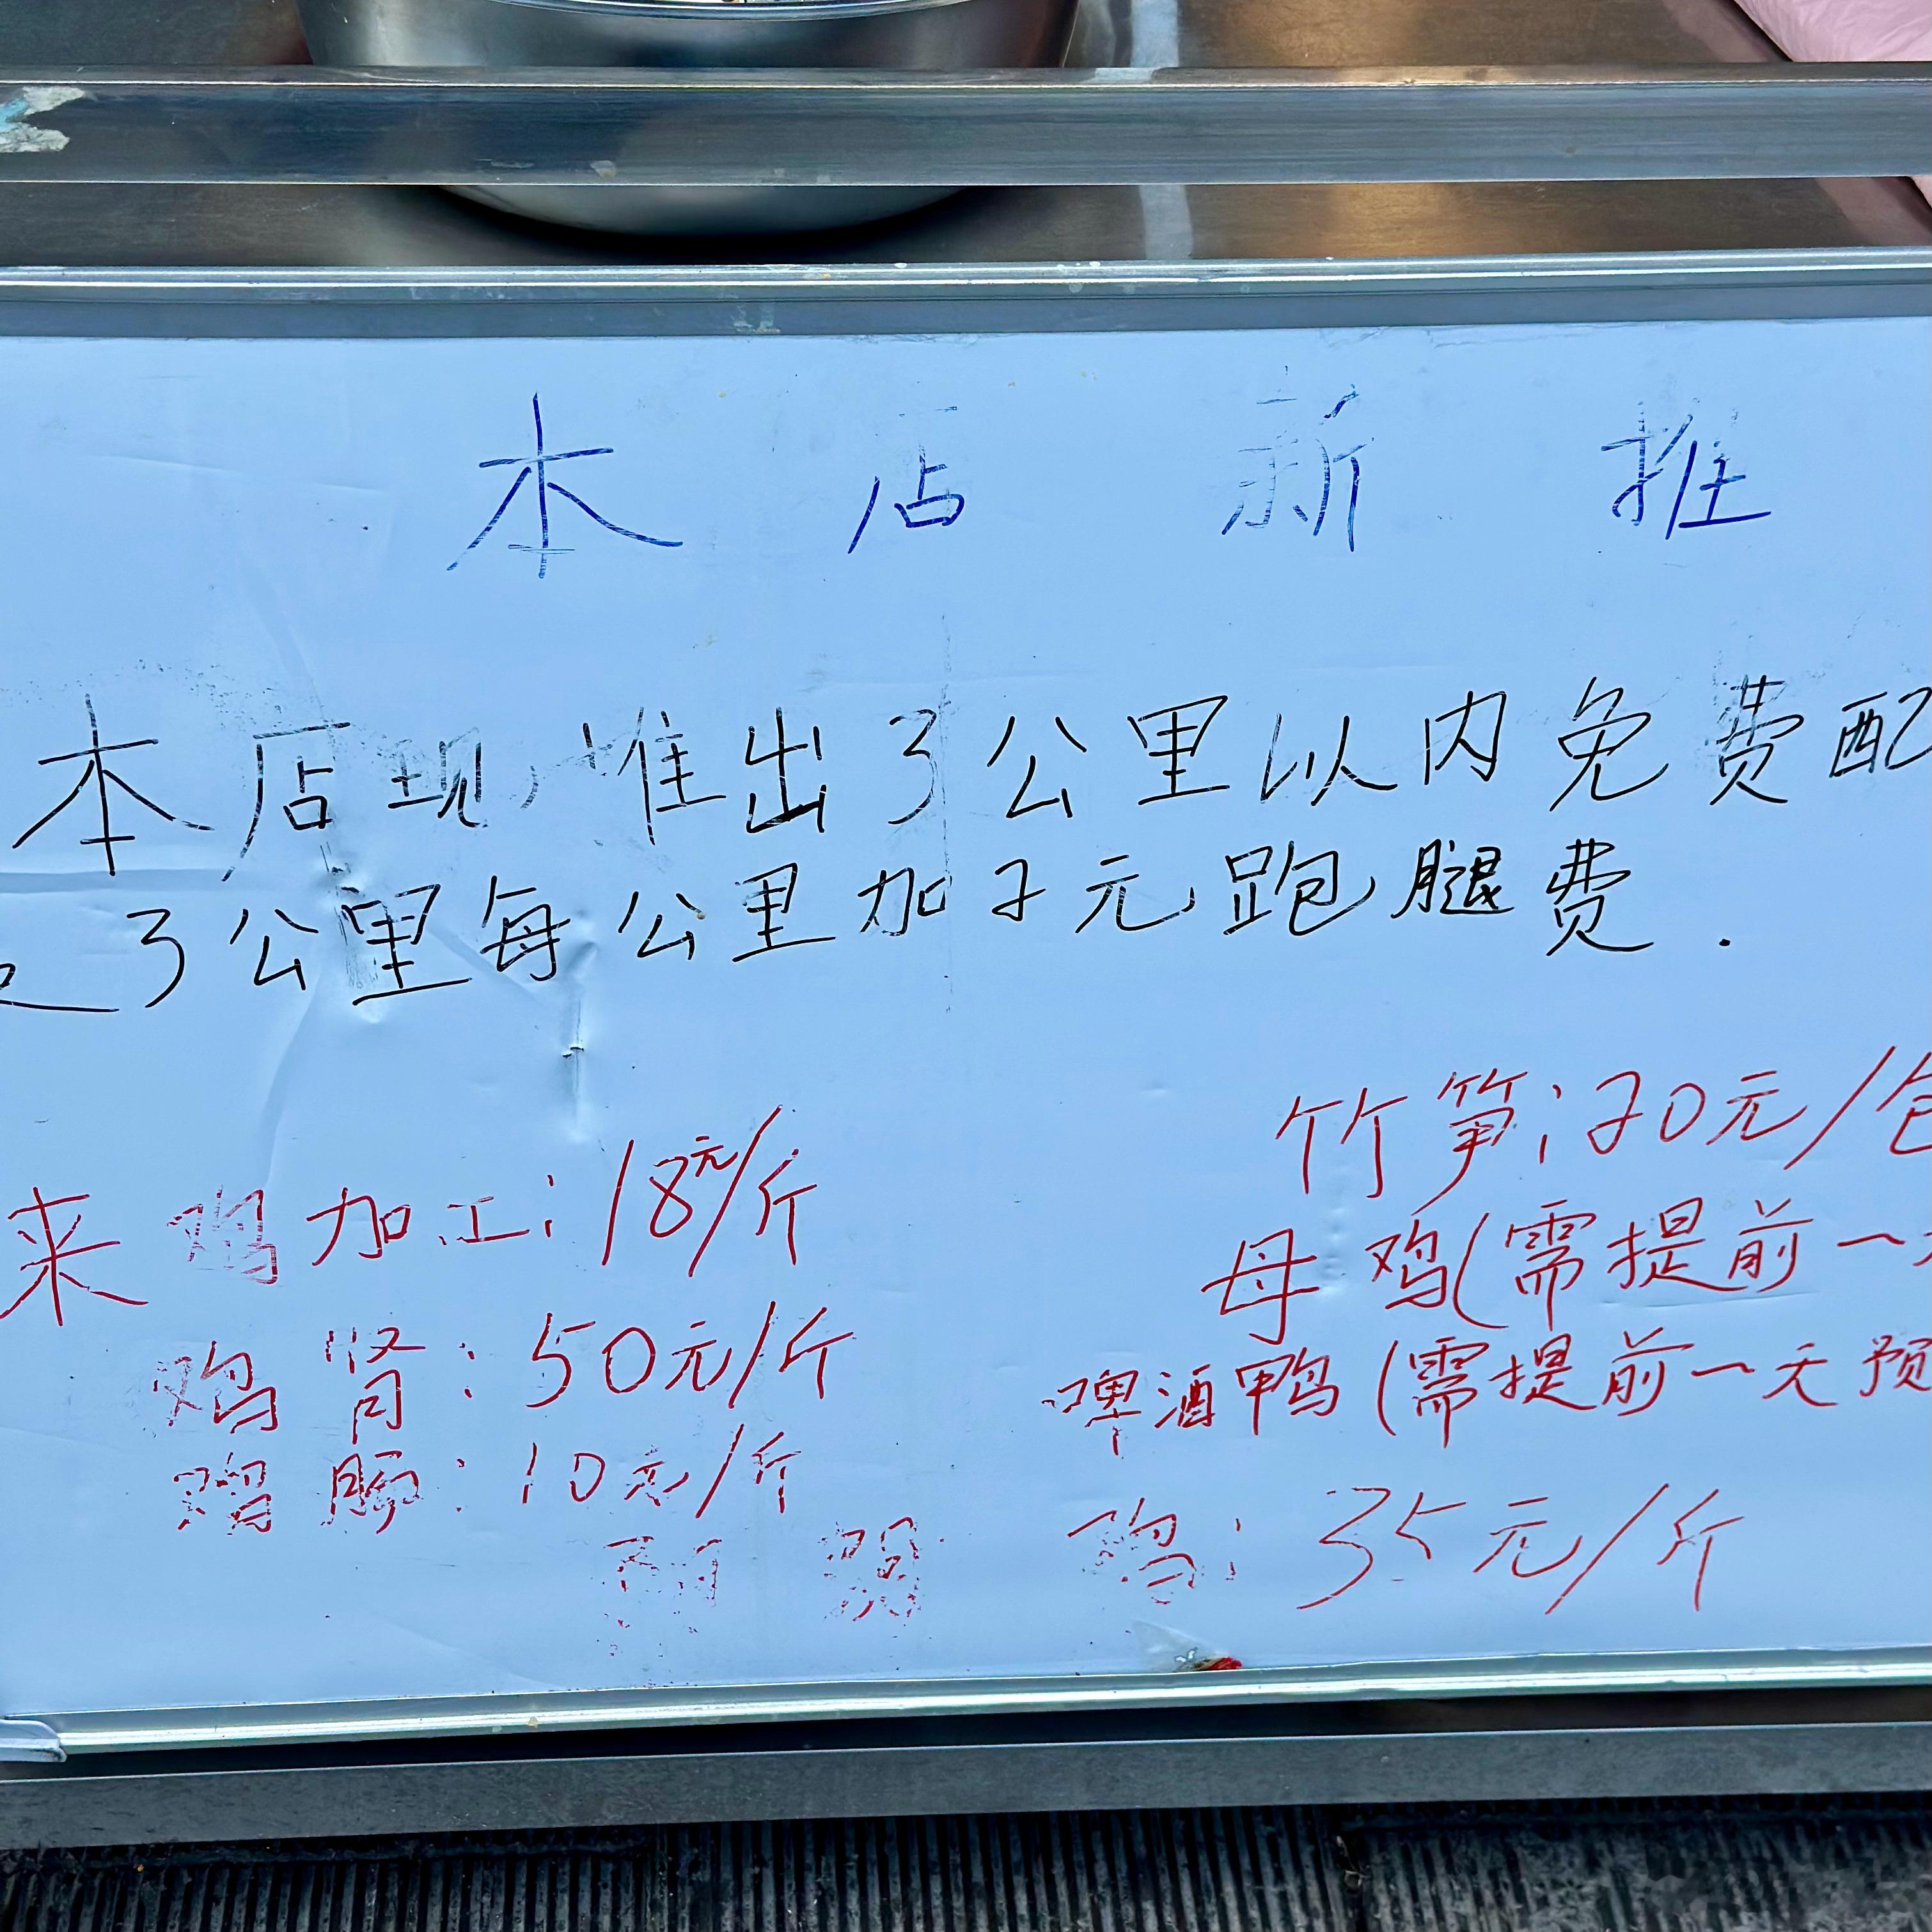 本店新推
本店现推出3公里以内免费配
3公里每公里加2元跑腿费.
竹笋:20元/包
来鸡加工:18元/斤
母鸡(需提前一天
鸡肾:50元/斤
啤酒鸭(需提前一天预
鸡肠:10元/斤
鸡:35元/斤